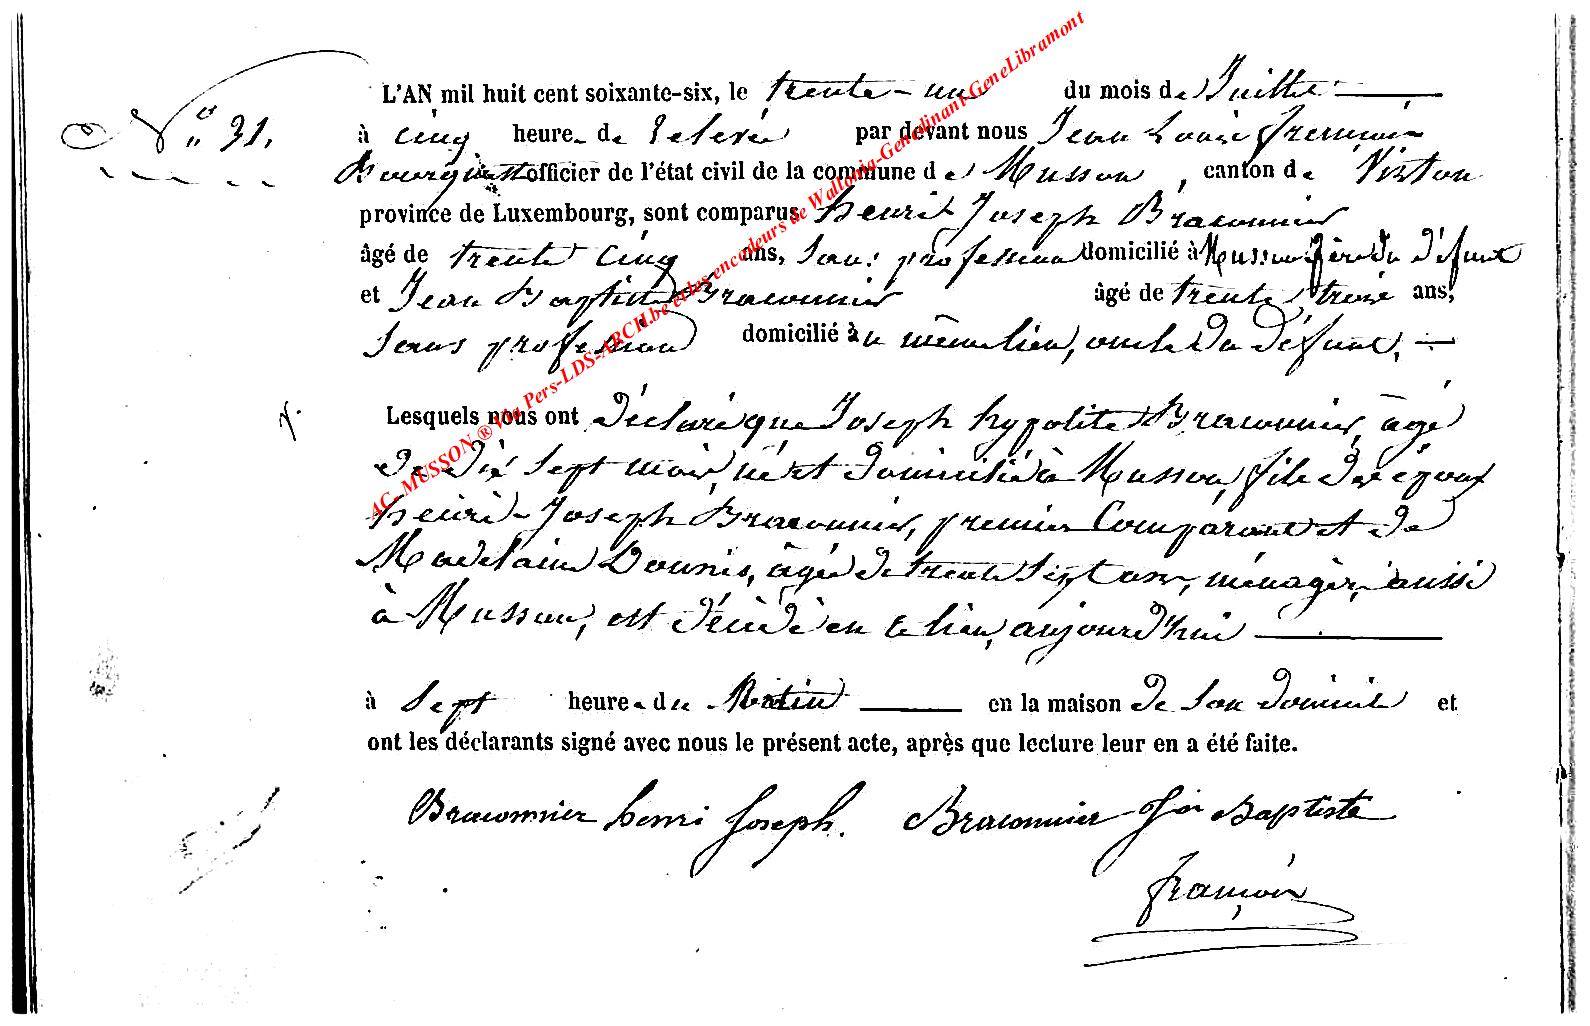 N° 31.
L'AN mil huit cent soixante-six, le trente-un du mois de Juillet
à cinq heures de relevée par devant nous Jean Louis François
officier de l'état civil de la commune de Musson, canton de Virton
province de Luxembourg, sont comparus Henri-Joseph Braconnier
âgé de trente cinq ans, sans profession domicilié à Musson père du défunt
et Jean Baptiste Braconnier âgé de trente trois ans,
sans profession domicilié au même lieu, oncle du défunt,
Lesquels nous ont déclaré que Joseph hypolite Braconnier, âgé
de dix sept mois, né et domicilié à Musson, fils des époux
henri-Joseph Braconnier, premier Comparant et de
Madelaine Dounis, âgée de trente sept ans, ménagère, aussi
à Musson, est décédé en ce lieu, aujourd'hui
à Sept heures du Matin en la maison de son domicile et
ont les déclarants signé avec nous le présent acte, après que lecture leur en a été faite.
Braconnier henri Joseph. Braconnier Jn Baptiste
françois
AC_MUSSON ® Via Pers-LDS-ARCH.be et les encodeurs de Wallonia-Genedinant-GeneLibramont